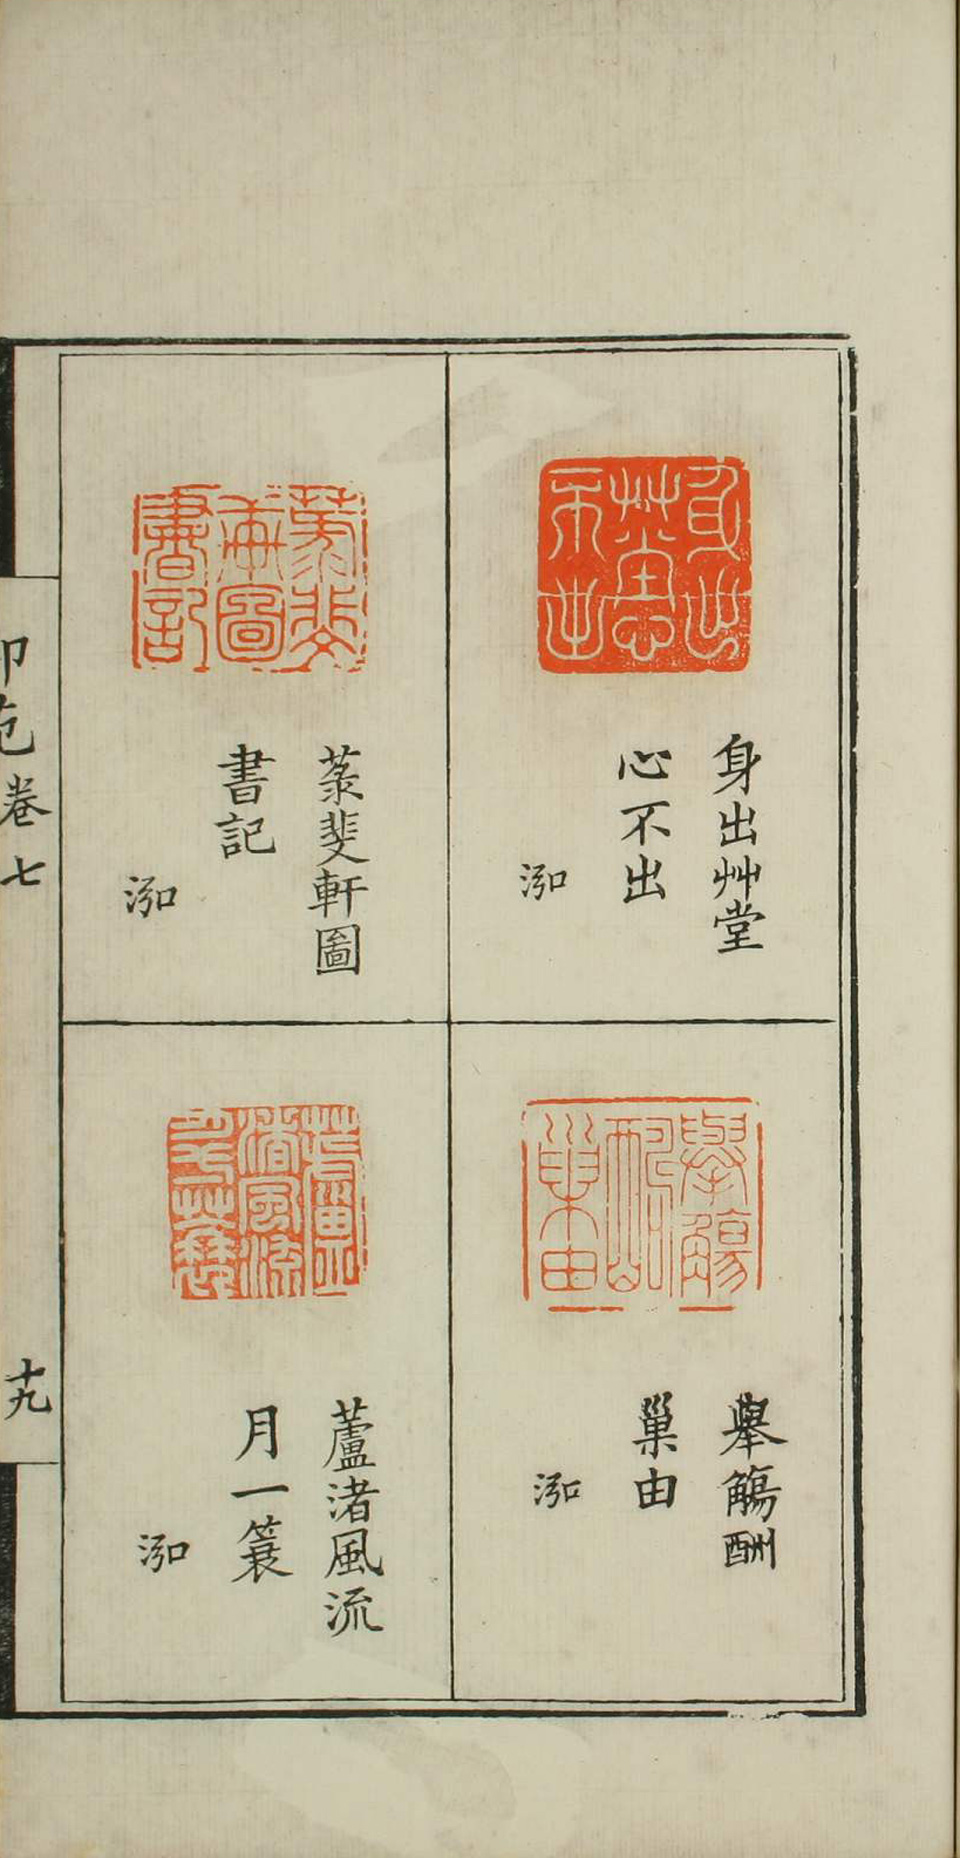 身出艸堂
心不出
泓
舉觴酬
巢由
泓
菉斐軒圖
書記
泓
蘆渚風流
月一簑
泓
印范卷七
十九